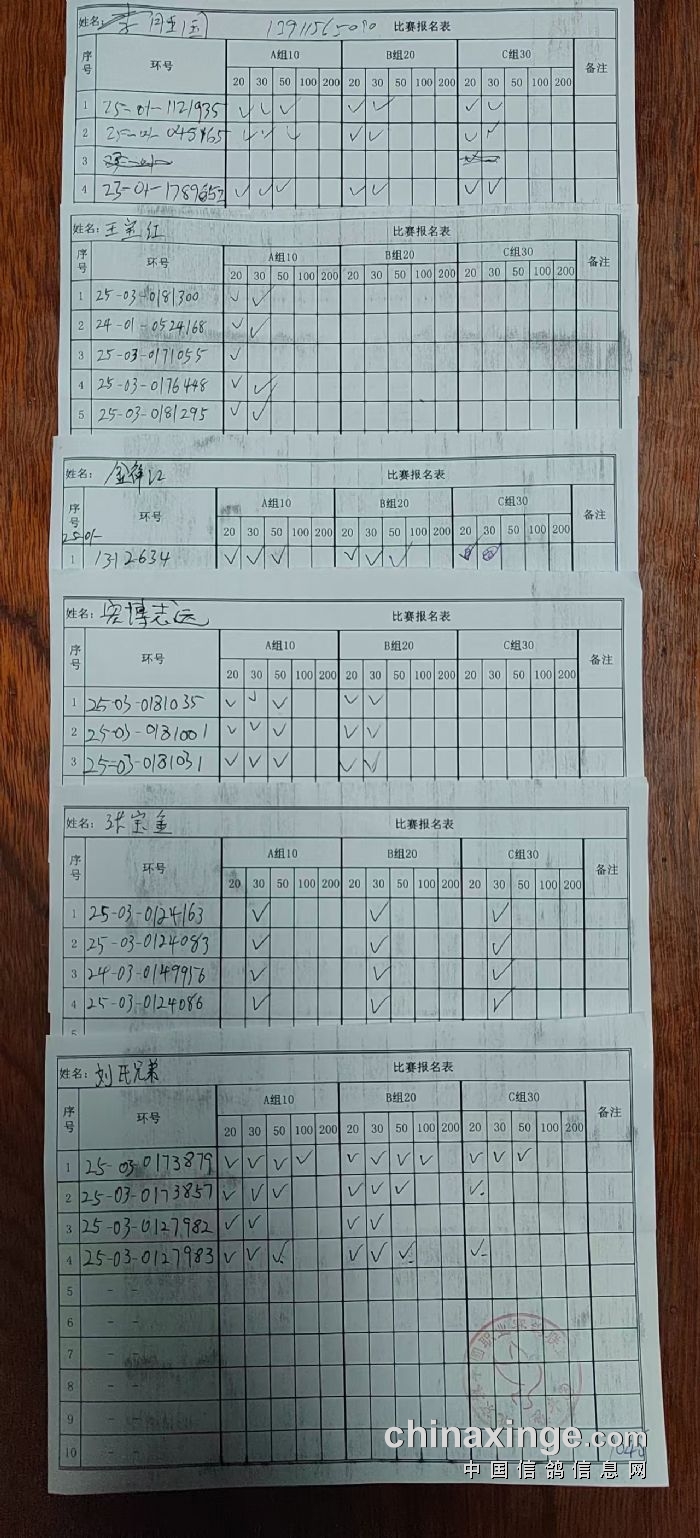 姓名: 闫重国 比赛报名表
序号 环号 A组10 B组20 C组30 备注
20 30 50 100 200 20 30 50 100 200 20 30 50 100 200
1 25-01-1121935 ✓ ✓ ✓ ✓ ✓ ✓ ✓
2 25-01-045465 ✓ ✓ ✓ ✓ ✓ ✓ ✓
3
4 23-01-1789652 ✓ ✓ ✓ ✓ ✓ ✓ ✓
姓名: 王宝红 比赛报名表
序号 环号 A组10 B组20 C组30 备注
20 30 50 100 200 20 30 50 100 200 20 30 50 100 200
1 25-03-0181300 ✓ ✓
2 24-01-0524168 ✓ ✓
3 25-03-0171055 ✓
4 25-03-0176448 ✓ ✓
5 25-03-0181295 ✓ ✓
姓名: 金祥江 比赛报名表
序号 环号 A组10 B组20 C组30 备注
20 30 50 100 200 20 30 50 100 200 20 30 50 100 200
25-01-
1 1312634 ✓ ✓ ✓ ✓ ✓ ✓
姓名: 宏博志远 比赛报名表
序号 环号 A组10 B组20 C组30 备注
20 30 50 100 200 20 30 50 100 200 20 30 50 100 200
1 25-03-0181035 ✓ ✓ ✓ ✓ ✓
2 25-03-0181001 ✓ ✓ ✓ ✓ ✓
3 25-03-0181031 ✓ ✓ ✓ ✓ ✓
姓名: 张宝金 比赛报名表
序号 环号 A组10 B组20 C组30 备注
20 30 50 100 200 20 30 50 100 200 20 30 50 100 200
1 25-03-0124163 ✓ ✓ ✓
2 25-03-0124083 ✓ ✓ ✓
3 24-03-0149956 ✓ ✓ ✓
4 25-03-0124086 ✓ ✓ ✓
5
姓名: 刘氏兄弟 比赛报名表
序号 环号 A组10 B组20 C组30 备注
20 30 50 100 200 20 30 50 100 200 20 30 50 100 200
1 25-03-0173879 ✓ ✓ ✓ ✓ ✓ ✓ ✓ ✓ ✓ ✓ ✓
2 25-03-0173857 ✓ ✓ ✓ ✓ ✓ ✓ ✓
3 25-03-0127982 ✓ ✓ ✓ ✓
4 25-03-0127983 ✓ ✓ ✓ ✓ ✓ ✓ ✓
5 - -
6 - -
7 - -
8 - -
9 - -
10 - -
chinaxinge.com
中国信鸽信息网